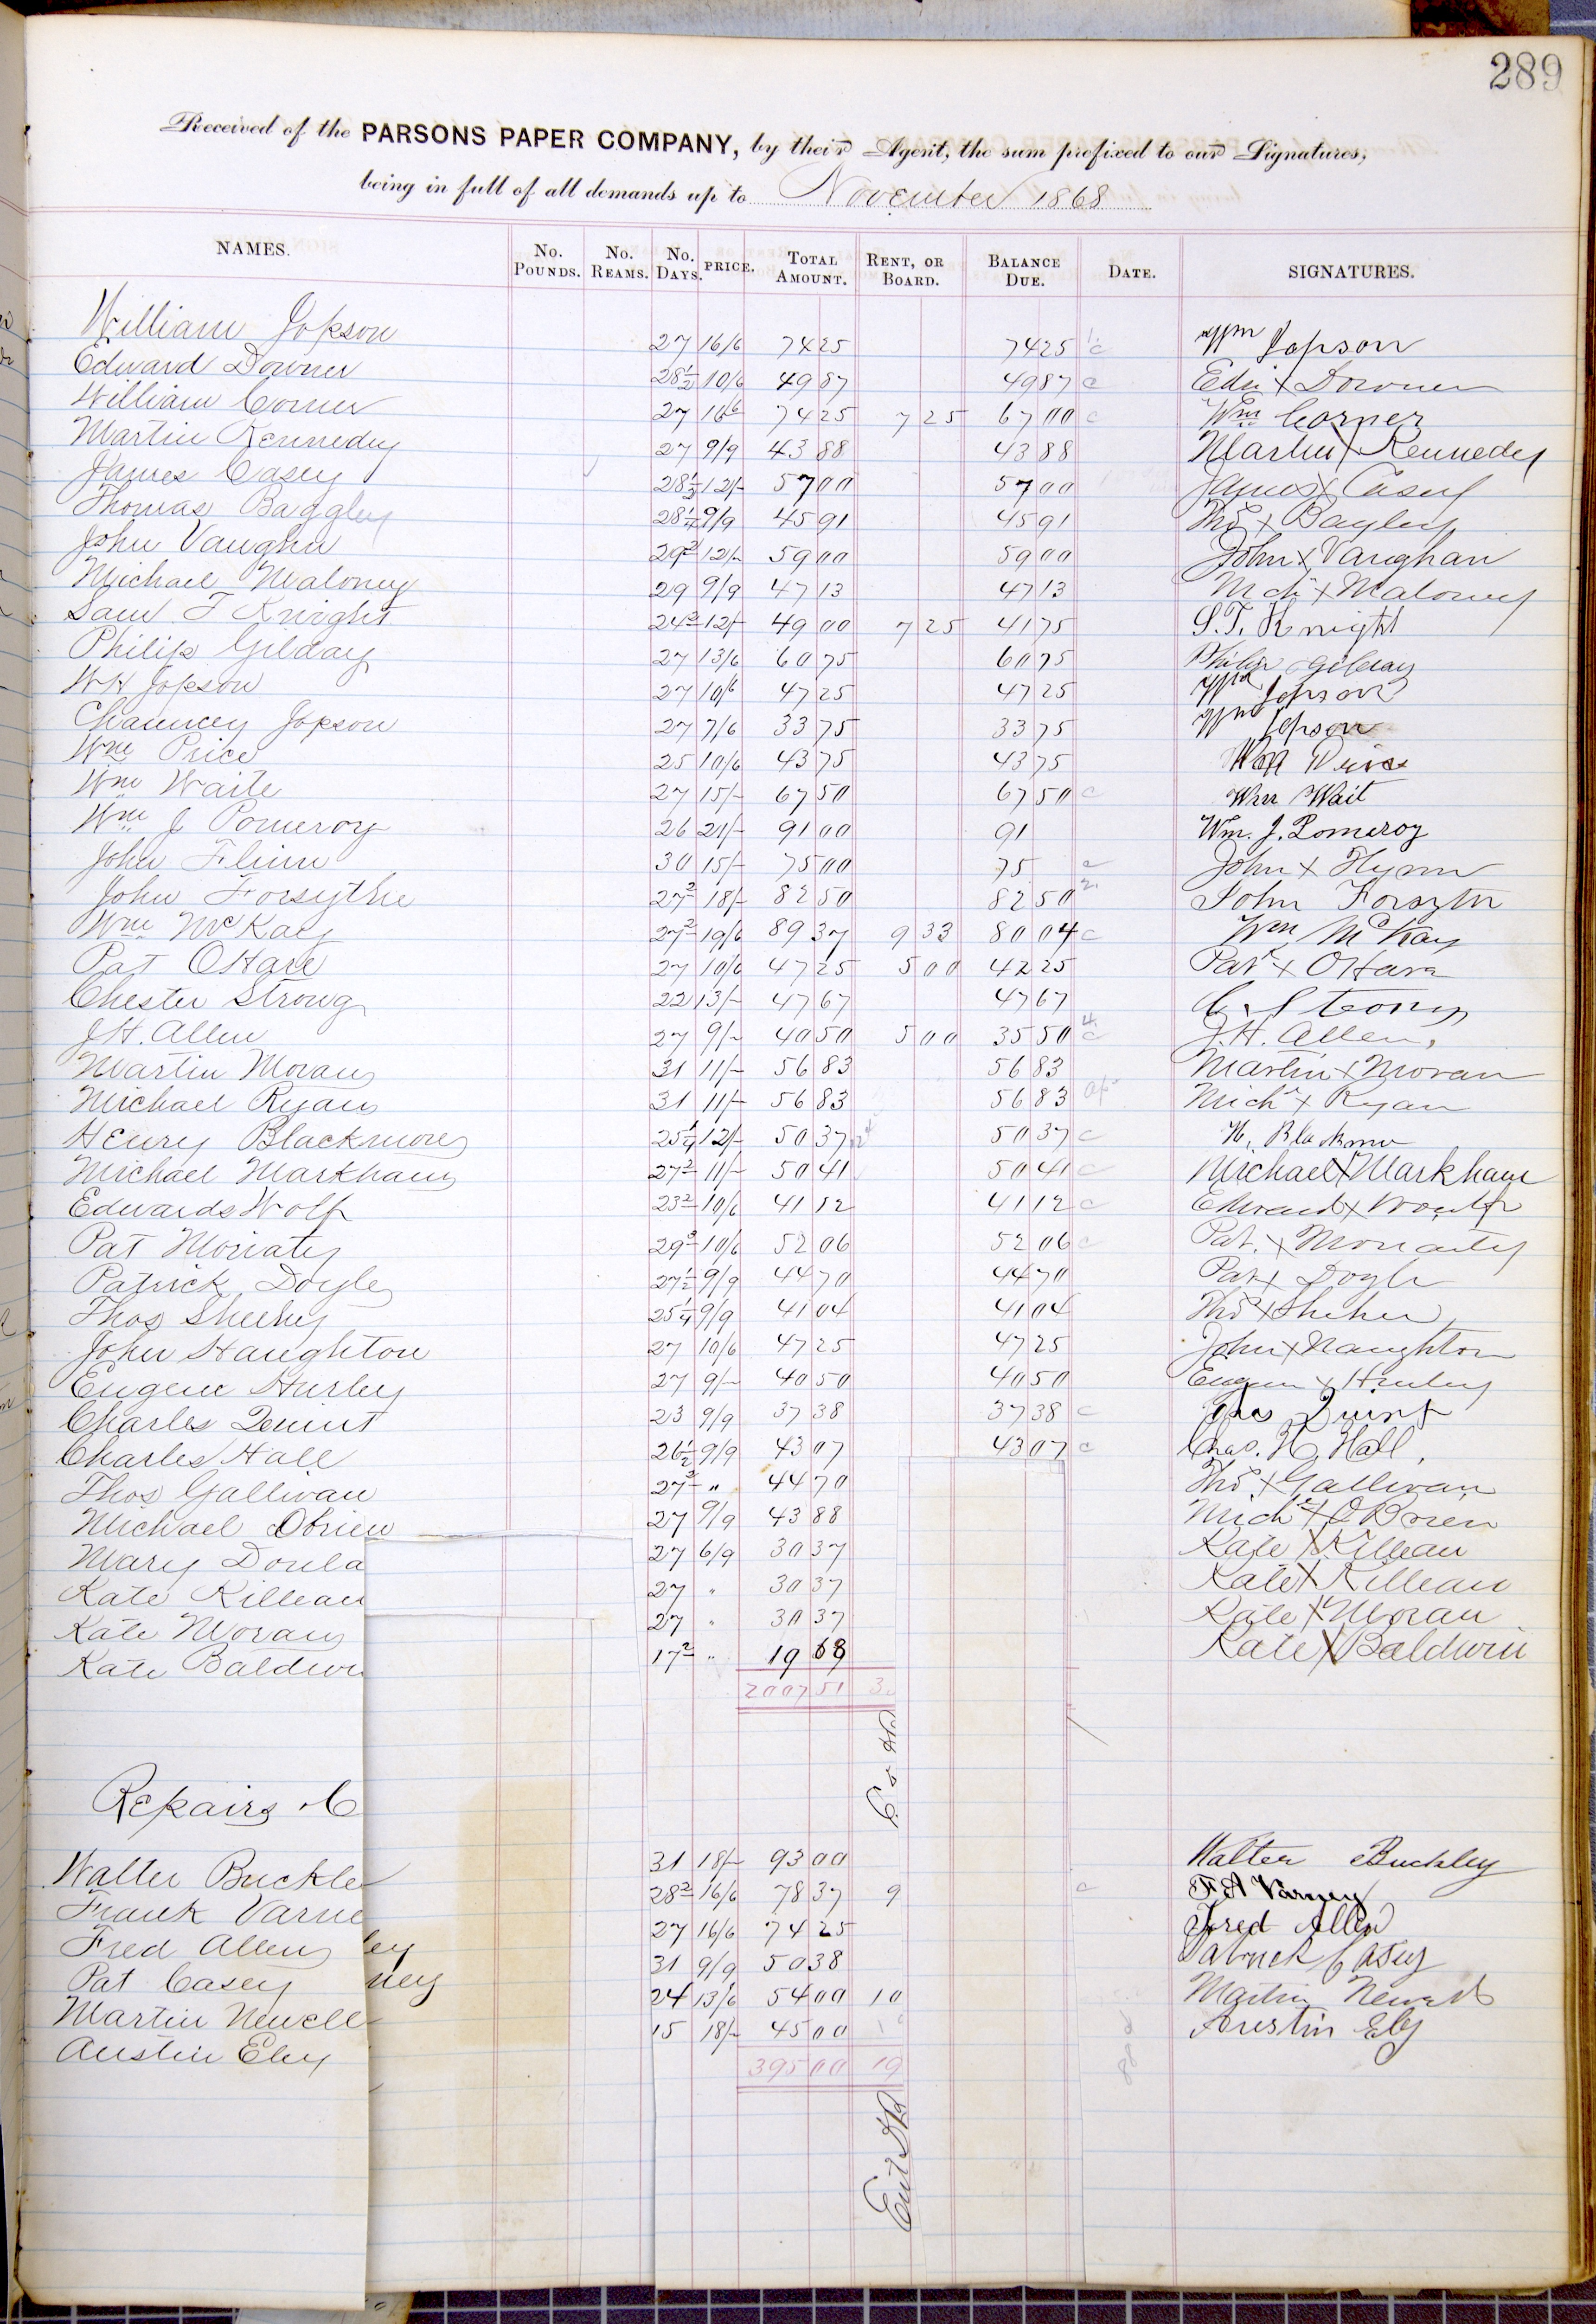 289
Received of the PARSONS PAPER COMPANY, by their Agent, the sum prefixed to our Signatures,
being in full of all demands up to November 1868
NAMES. No. Pounds. No. Reams. No. Days. PRICE. Total Amount. Rent, or Board. Balance Due. Date. SIGNATURES.
William Jopson 27 16/6 74 25 74 25 Wm Jopson
Edward Downer 28 1/2 10/6 49 87 49 87 c Edw x Downer
William Corner 27 16/6 74 25 7 25 67 00 c Wm Corner
Martin Kennedy 27 9/9 43 88 43 88 Martin X Kennedy
James Casey 28 1/2 12/- 57 00 57 00 James X Casey
Thomas Baggley 28 1/4 9/9 45 91 45 91 Thos x Bagley
John Vaughn 29 2 12/- 59 00 59 00 John x Vaughan
Michael Maloney 29 9/9 47 13 47 13 Mch x Maloney
Saml T Knight 24 2 12/- 49 00 7 25 41 75 S. T. Knight
Philip Gilday 27 13/6 60 75 60 75 Philip Gilday
W H Jopson 27 10/6 47 25 47 25 Wm Jopson
Chauncey Jopson 27 7/6 33 75 33 75 Wm Jopson
Wm Price 25 10/6 43 75 43 75 Price
Wm Waite 27 15/- 67 50 67 50 c Wm Wait
Wm J Pomeroy 26 21/- 91 00 91 Wm. J. Pomeroy
John Flinn 30 15/- 75 00 75 c John x Flynn
John Forsythe 27 2 18/- 82 50 82 50 John Forsyth
Wm McKay 27 2 19/6 89 37 9 33 80 04 c Wm McKay
Pat OHare 27 10/6 47 25 5 00 42 25 Pat x OHara
Chester Strong 22 13/- 47 67 47 67 C. Strong
J H. Allen 27 9/- 40 50 5 00 35 50 c J. H. Allen,
Martin Moran 31 11/- 56 83 56 83 Martin x Moran
Michael Ryan 31 11/- 56 83 56 83 Mich x Ryan
Henry Blackmore 25 1/4 12/- 50 37 50 37 c H. Blackmore
Michael Markham 27 2 11/- 50 41 50 41 c Michael X Markham
Edward Wolf 23 2 10/6 41 12 41 12 c Edward x
Pat Moriaty 29 3 10/6 52 06 52 06 c Pat. x Moriarity
Patrick Doyle 27 1/2 9/9 44 70 44 70 Pat x Doyle
Thos Sheehy 25 1/4 9/9 41 04 41 04 Thos x
John Haughton 27 10/6 47 25 47 25 John x Naughton
Eugene Hurley 27 9/- 40 50 40 50 Eugene x Hurley
Charles Quint 23 9/9 37 38 37 38 c Chas Quint
Charles Hall 26 1/2 9/9 43 07 43 07 c Chas. H. Hall,
Thos Gallivan 27 2 " 44 70 Thos x Gallivan
Michael Obrien 27 9/9 43 88 Mich x OBrien
Mary Donla 27 6/9 30 37 Kate X Killean
Kate Killean 27 " 30 37 Kate X Killean
Kate Moran 27 " 30 37 Kate X Moran
Kate Baldwi 17 2 " 19 69 Kate X Baldwin
2007 51 3
Repairs C
Walter Buckle 31 18/- 93 00 Walter Buckley
Frank Varne 28 2 16/6 78 37 9 c F A Varney
Fred Allen 27 16/6 74 25 Fred Allen
ley
Pat Casey 31 9/9 50 38 Patrick Casey
ney
Martin Newell 24 13/6 54 00 10 Martin Newell
Austin Eley 15 18/- 45 00 Austin Ely
395 00 19